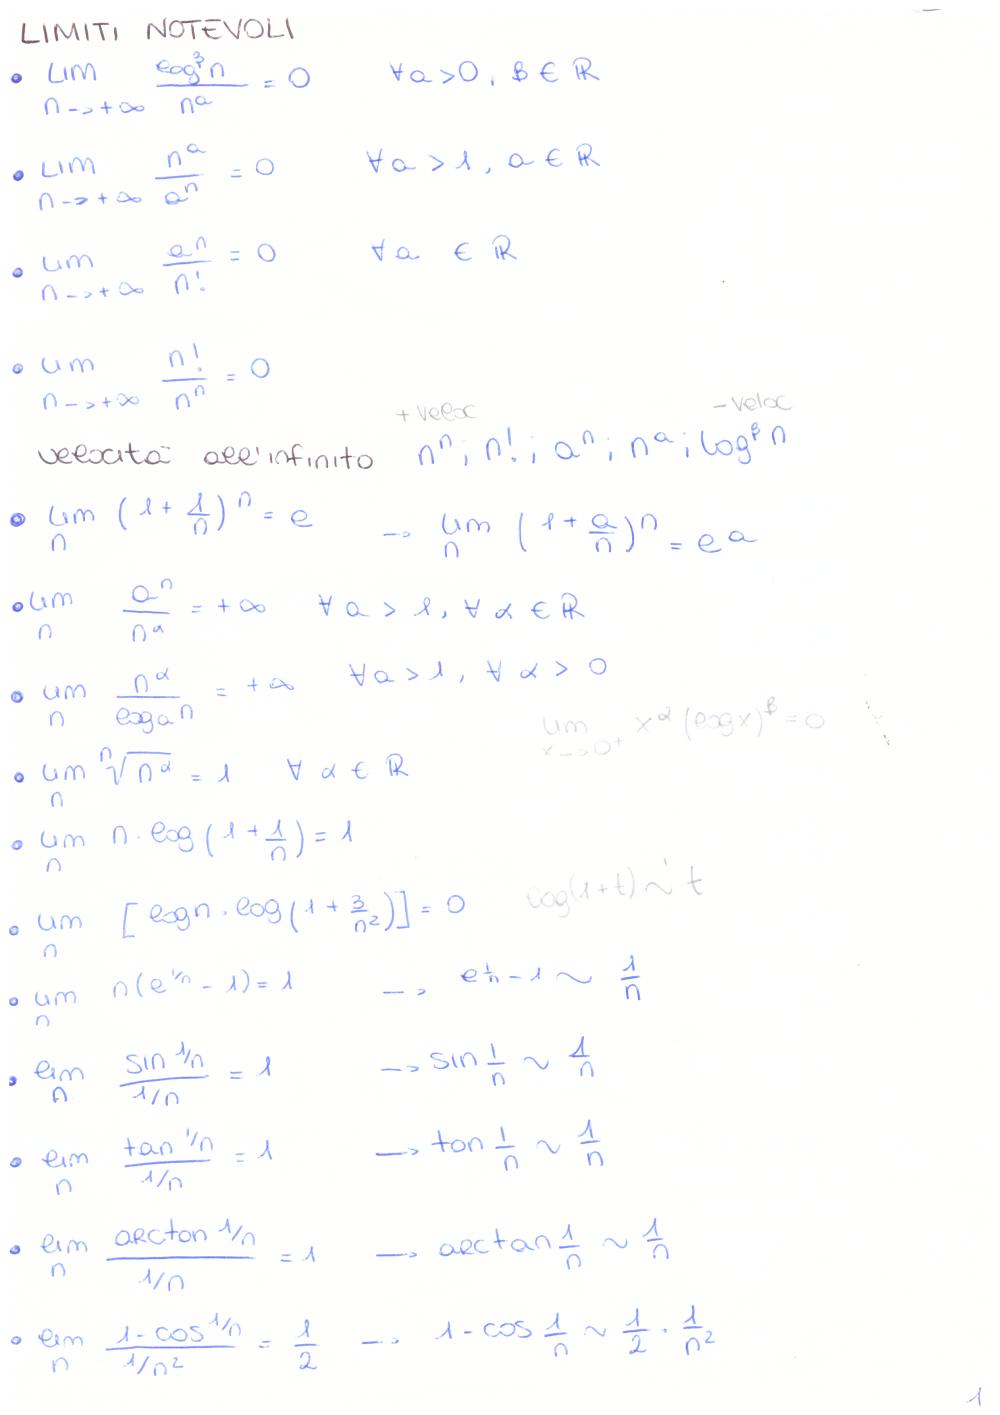 LIMITI NOTEVOLI
• lim n->+∞ log^β n / n^a = 0 ∀a>0, β ∈ ℝ
• lim n->+∞ n^a / a^n = 0 ∀a>1, a ∈ ℝ
• lim n->+∞ a^n / n! = 0 ∀a ∈ ℝ
• lim n->+∞ n! / n^n = 0
+ veloc - veloc
velocità all'infinito n^n; n!; a^n; n^a; log^β n
• lim n (1 + 1/n)^n = e -> lim n (1 + a/n)^n = e^a
• lim n a^n / n^α = +∞ ∀a>1, ∀α ∈ ℝ
• lim n n^α / log_a n = +∞ ∀a>1, ∀α>0
lim x->0+ x^α (log x)^β = 0
• lim n ⁿ√(n^α) = 1 ∀α ∈ ℝ
• lim n n · log(1 + 1/n) = 1
• lim n [log n · log(1 + 3/n²)] = 0 log(1+t) ~ t
• lim n n(e^{1/n} - 1) = 1 -> e^{1/n} - 1 ~ 1/n
• lim n sin 1/n / 1/n = 1 -> sin 1/n ~ 1/n
• lim n tan 1/n / 1/n = 1 -> tan 1/n ~ 1/n
• lim n arctan 1/n / 1/n = 1 -> arctan 1/n ~ 1/n
• lim n 1 - cos 1/n / 1/n² = 1/2 -> 1 - cos 1/n ~ 1/2 · 1/n²
1